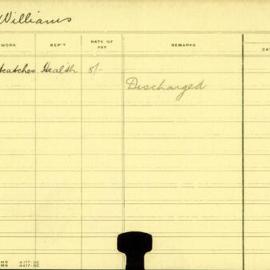 Williams
WORK DEP'T RATE OF PAY REMARKS
Health 5/-
Discharged